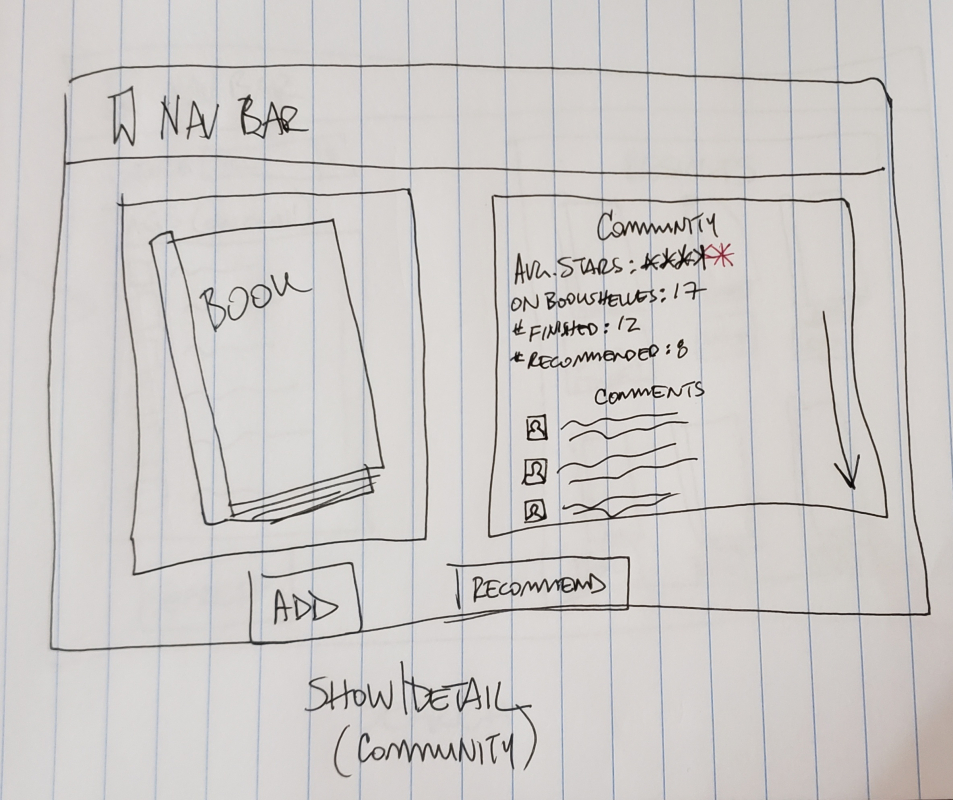 NAV BAR
BOOK
COMMUNITY
AVG. STARS: *****
ON BOOKSHELVES: 17
# FINISHED: 12
# RECOMMENDED: 8
COMMENTS
ADD
RECOMMEND
SHOW/DETAIL
(COMMUNITY)